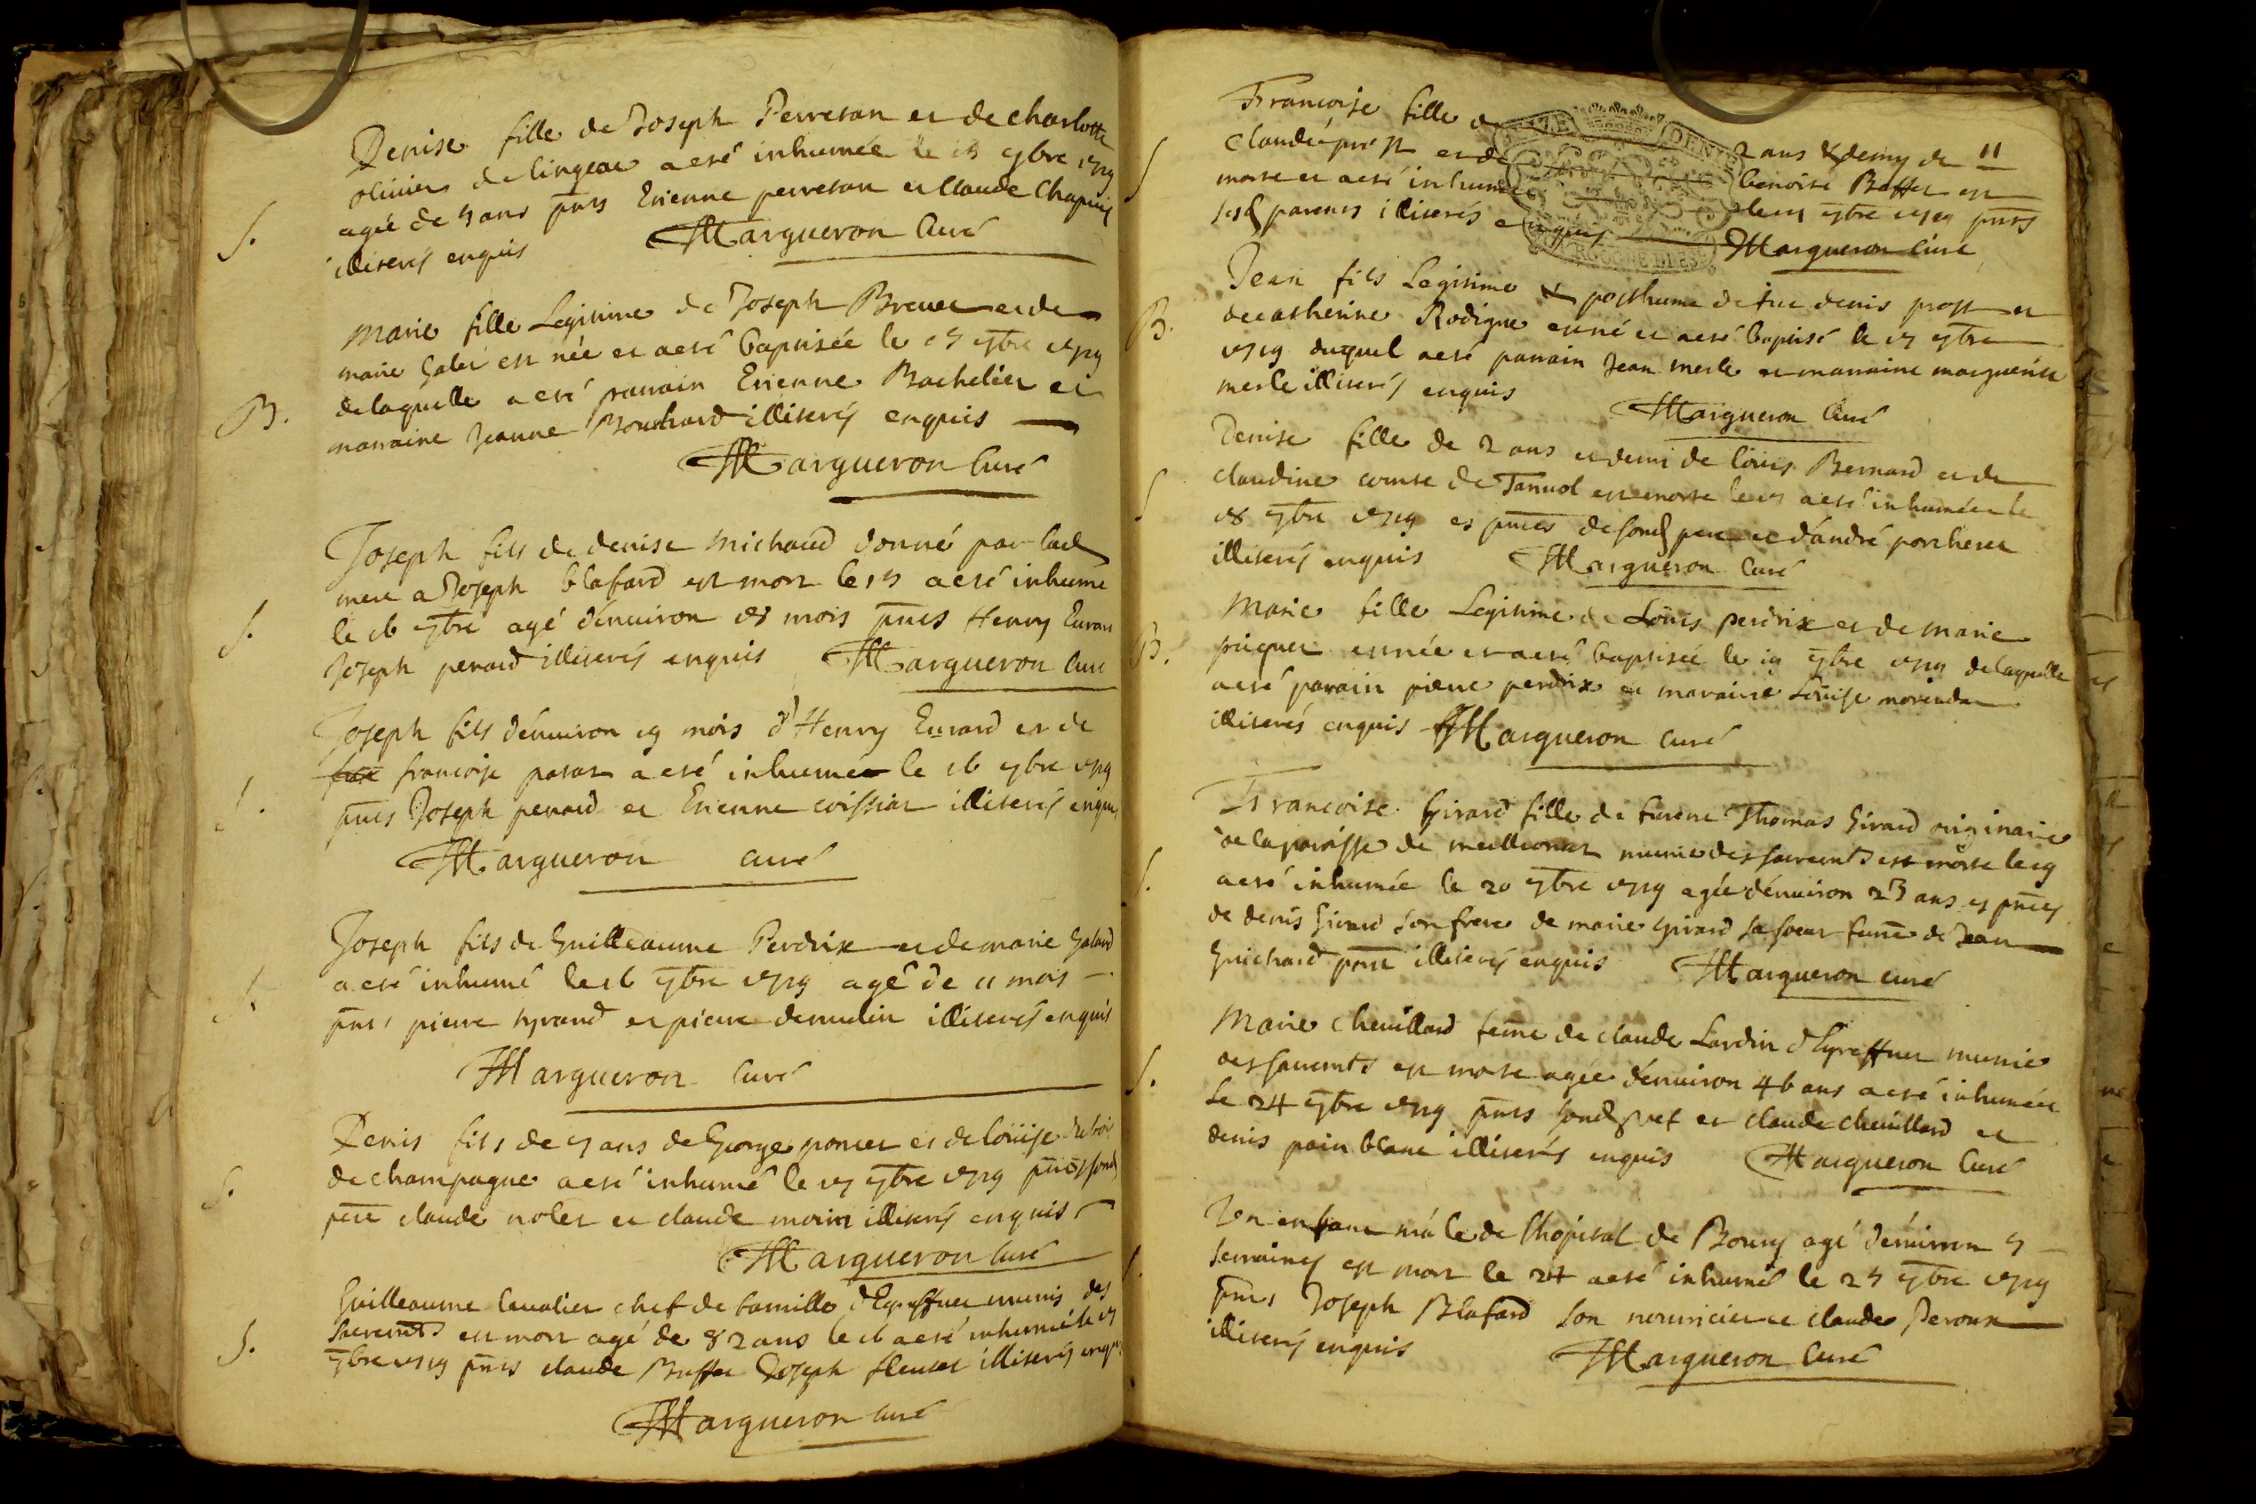 Denise fille de Joseph Perretan et de charlotte
olivier de lingeat a eté inhumée le 15 7bre 1719
agée de 5 ans pnts Etienne perretan et Claude Chapuis
illiterés enquis Margueron Curé
S.
Marie fille Legitime de Joseph Brevet et de
marie Galet est née et a eté baptisée le 15 7bre 1719
de laquelle a eté parrain Etienne Bachelier et
marraine Jeanne Bouchard illiterés enquis
B.
Margueron Curé
Joseph fils de denise Michaud donné par lad
mere a Joseph blafard est mort le 15 a eté inhumé
le 16 7bre agé d'environ 18 mois pnts Henry Evrard
Joseph penard illiterés enquis Margueron Curé
S.
Joseph fils d'environ 19 mois d'Henry Evrard et de
francoise a eté inhumé le 16 7bre 1719
pnts Joseph penard et Etienne illiterés enquis
Margueron curé
Joseph fils de Guilleaume Perdrix et de marie Galand
a eté inhumé le 16 7bre 1719 agé de 11 mois
pnts pierre et pierre illiterés enquis
Margueron Curé
Denis fils de 5 ans de George poncet et de Loüise
de champagne a eté inhumé le 17 7bre 1719 pnts sond
pere claude nolet et claude morin illiterés enquis
S.
Margueron Curé
Guilleaume Cavalier chef de famille munis des
sacremts est mort agé de 82 ans le 16 a eté inhumé le 17
7bre 1719 pnts claude Buffet Joseph illiterés enquis
S.
Margueron Curé
Francoise fille de 2 ans & demy de
Claude prost et de benoite Buffet est
morte et a eté inhumée le 17 7bre 1719 pnts
sesd parents illiterés enquis Margueron Curé
S
Jean fils Legitime & posthume de feu denis prost et
de catherine Rodigue est né et a eté baptisé le 17 7bre
1719 duquel a eté parrain Jean merle et marraine marguerite
merle illiterés enquis
B.
Margueron Curé
Denise fille de 2 ans et demi de Loüis Bernard et de
claudine comte de est morte le 17 a eté inhumée le
18 7bre 1719 es pnces de sond pere et d'andré porcheret
illiterés enquis Margueron Curé
S
Marie fille Legitime de Loüis perdrix et de marie
piquet est née et a eté baptisée le 19 7bre 1719 de laquelle
a eté parain pierre perdrix et maraine Loüise
illiterés enquis Margueron curé
B.
Francoise Girard fille de Thomas Girard originaire
de la paroisse de meillonnat munie des sacremts est morte le 19
a eté inhumée le 20 7bre 1719 agée d'environ 23 ans es pnces
de denis Girard son frere de marie Girard sa soeur feme de Jean
Guichard illiterés enquis Margueron curé
S.
Marie chevillard feme de claude Lardin munie
des sacremts est morte agée d'environ 46 ans a eté inhumée
Le 24 7bre 1719 pnts sond et claude chevillard et
denis pain blanc illiterés enquis Margueron Curé
S.
Un enfant mâle de l'hôpital de Bourg agé d'environ 5
semaines est mort le 24 a eté inhumé le 25 7bre 1719
pnts Joseph Blafard son nourricier et claude Peroux
illiterés enquis Margueron Curé